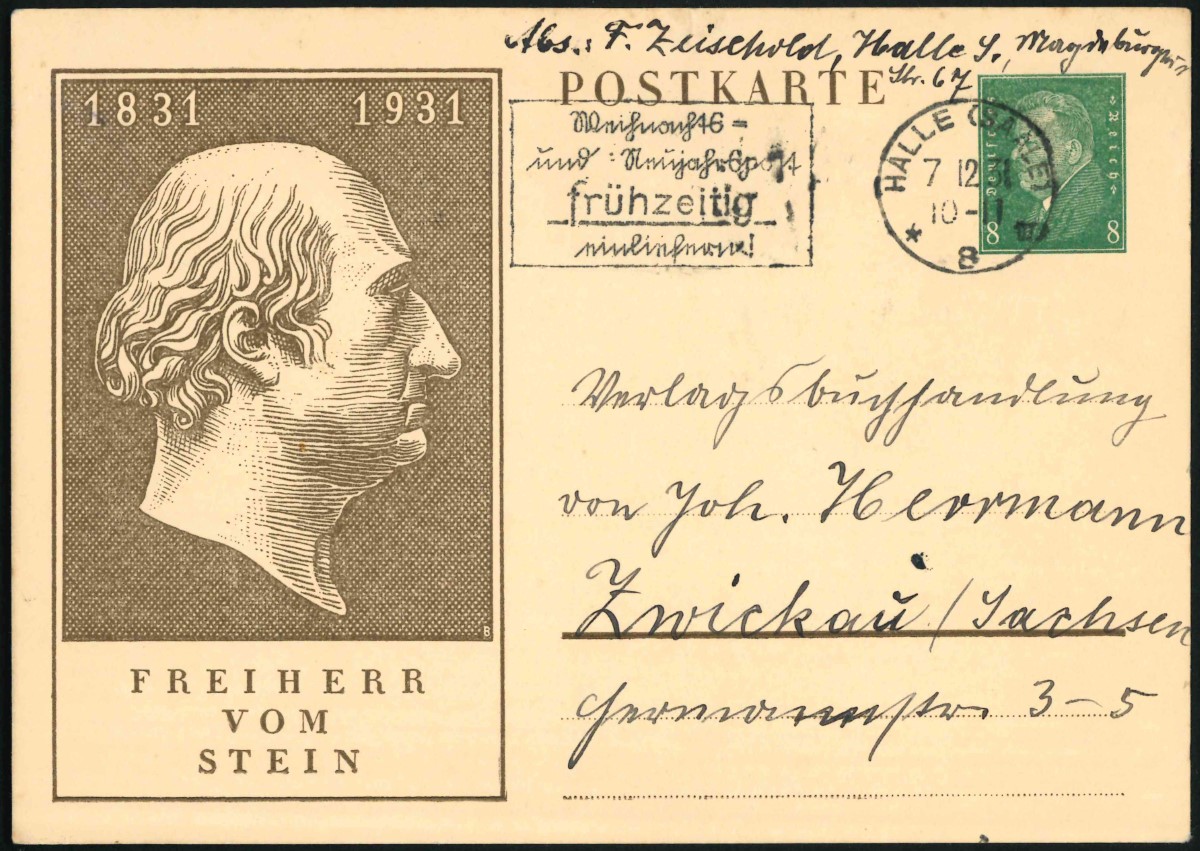 Abs.: F. Zeischold, Halle S., Magdeburger
Str. 67
POSTKARTE
1831 1931
Weihnachts-
und Neujahrspost
frühzeitig
einliefern!
HALLE (SAALE)
7.12.31
10-11
* 8
Deutsches Reich
8 8
Verlagsbuchhandlung
von Joh. Herrmann
Zwickau / Sachsen
Hermannstr. 3-5
B
FREIHERR
VOM
STEIN